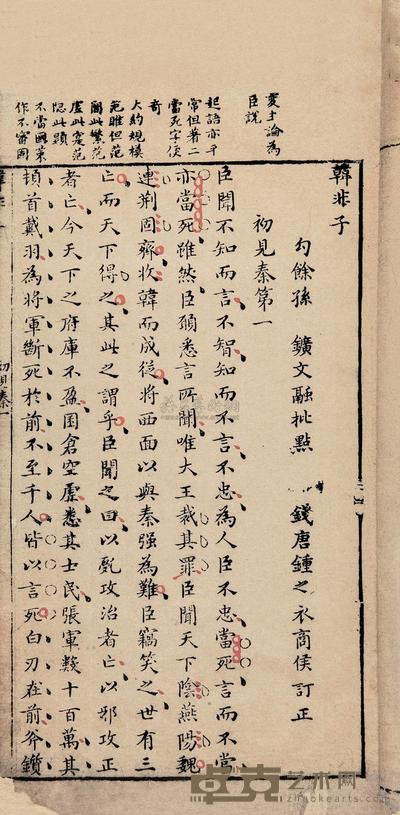 論為
臣說
起語亦平
常但著二
當死字便
奇
大約規模
范雎但范
簡此繁范
虛此寔范
隱此顯
不當國策
作不審固
韓非子
勾餘孫 鑛文融批點 錢唐鍾之衣商侯訂正
初見秦第一
臣聞不知而言不智知而不言不忠為人臣不忠當死言而不當
亦當死雖然臣願悉言所聞唯大王裁其罪臣聞天下陰燕陽魏
連荆固齊收韓而成從將西面以與秦强為難臣竊笑之世有三
亡而天下得之其此之謂乎臣聞之曰以亂攻治者亡以邪攻正
者亡今天下之府庫不盈囷倉空虛悉其士民張軍數十百萬其
頓首戴羽為將軍斷死於前不至千人皆以言死白刃在前斧鑕
韓非子
初見秦一
卓克艺术网
zhuokearts.com